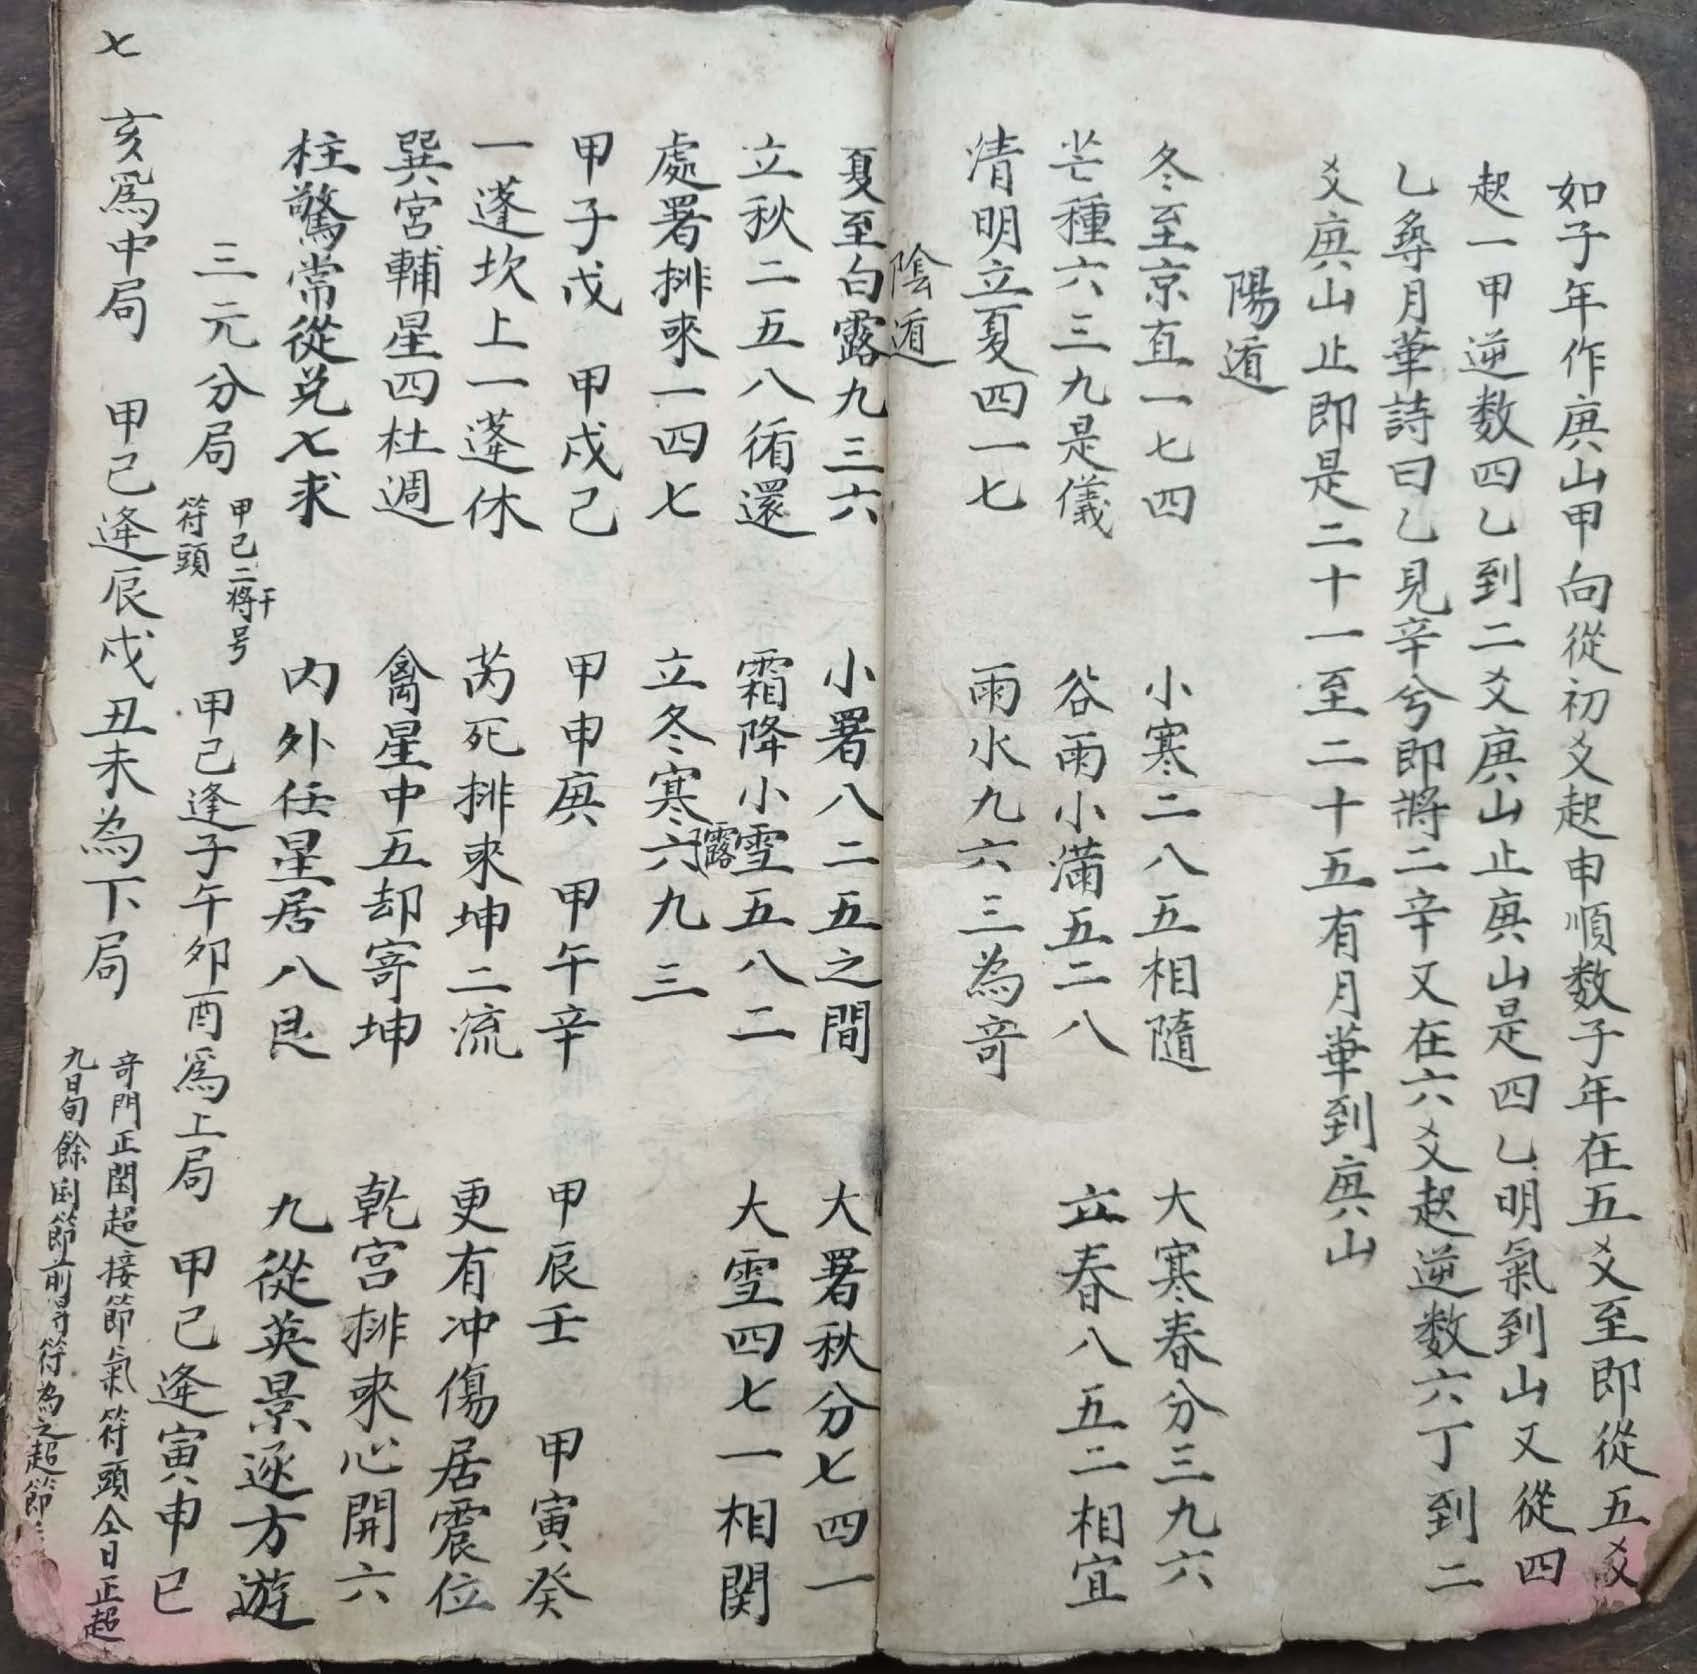 如子年作庚山甲向從初爻起申順数子年在五爻至即從五爻
起一甲逆数四乙到二爻庚山止庚山是四乙明氣到山又從四
乙尋月華詩曰乙見辛兮即將二辛又在六爻起逆数六丁到二
爻庚山止即是二十一至二十五有月華到庚山
陽遁
冬至京直一七四 小寒二八五相隨 大寒春分三九六
芒種六三九是儀 谷雨小滿五二八 立春八五二相宜
清明立夏四一七 雨水九六三為奇
陰遁
夏至白露九三六 小署八二五之間 大署秋分七四一
立秋二五八循還 霜降小雪五八二 大雪四七一相関
處署排來一四七 立冬寒露六九三
甲子戊 甲戌己 甲申庚 甲午辛 甲辰壬 甲寅癸
一蓬坎上一蓬休 芮死排來坤二流 更有冲傷居震位
巽宮輔星四杜週 禽星中五却寄坤 乾宮排來心開六
柱驚常從兌七求 内外任星居八艮 九從英景逐方遊
三元分局 甲己二將干号符頭 甲己逢子午卯酉為上局 甲己逢寅申巳
七
亥為中局 甲己逢辰戌丑未為下局 奇門正閏超接節氣符頭仝日正超
九日旬餘閏節前得符為之超節